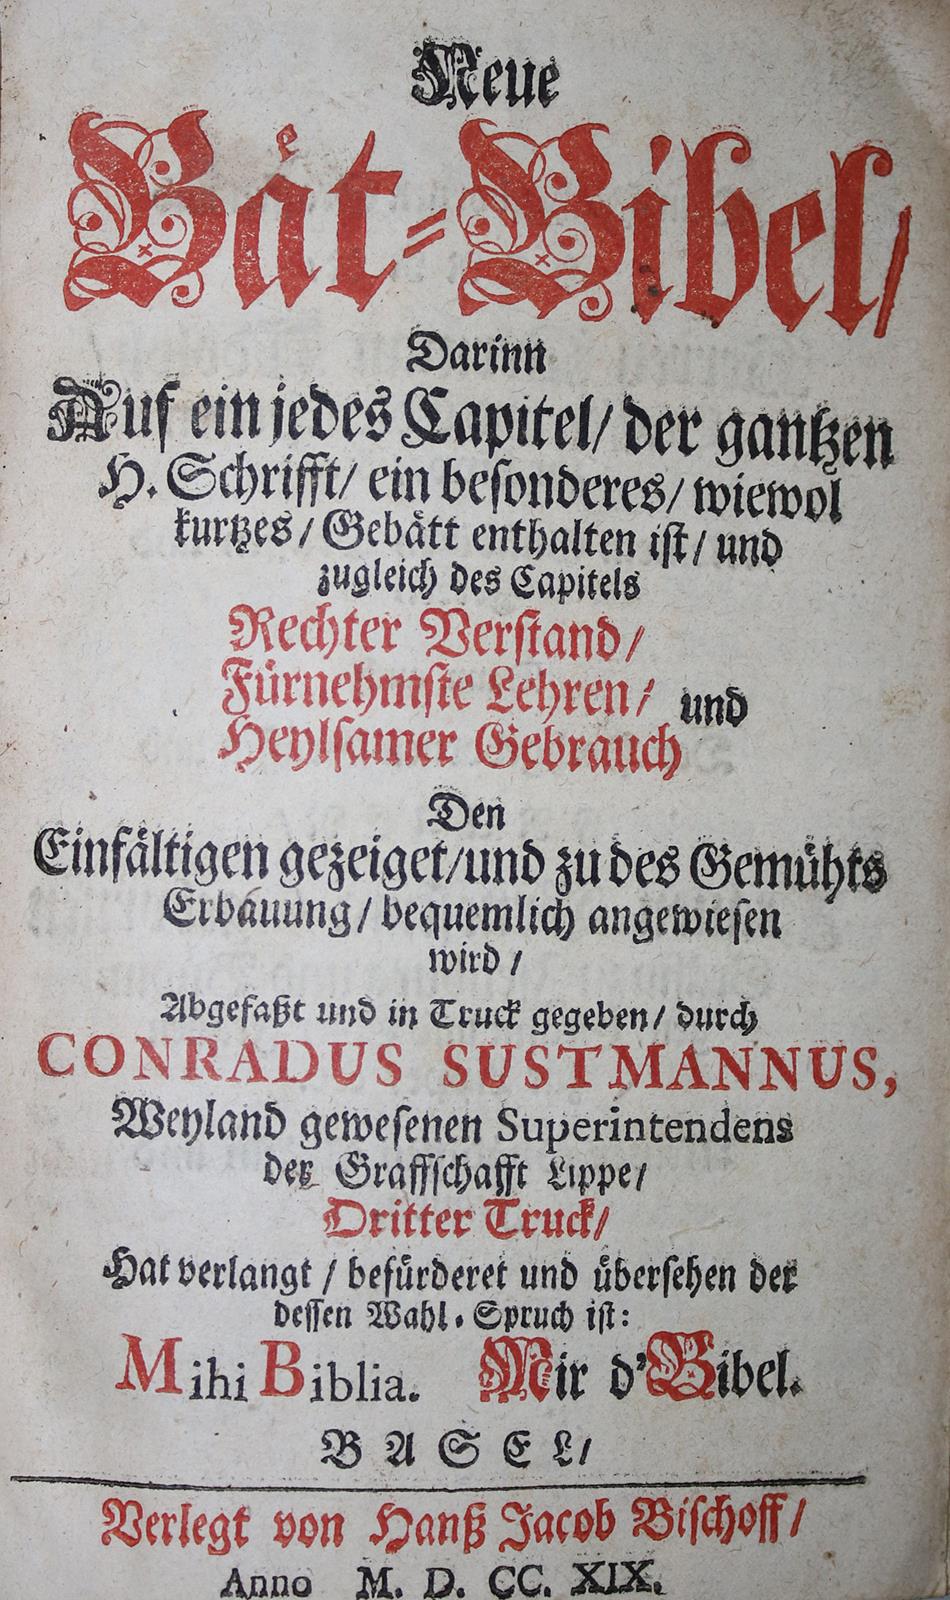 Neue
Baͤt-Bibel/
Darinn
Auf ein jedes Capitel/ der gantzen
H. Schrifft/ ein besonderes/ wiewol
kurtzes/ Gebätt enthalten ist/ und
zugleich des Capitels
Rechter Verstand/
Fürnehmste Lehren/ und
Heylsamer Gebrauch
Den
Einfältigen gezeiget/und zu des Gemühts
Erbäuung/ bequemlich angewiesen
wird/
Abgefaßt und in Truck gegeben/ durch
CONRADUS SUSTMANNUS,
Weyland gewesenen Superintendens
der Graffschafft Lippe/
Dritter Truck/
Hat verlangt/ befürderet und übersehen der
dessen Wahl-Spruch ist:
Mihi Biblia. Mir d'Bibel.
BASEL/
Verlegt von Hanß Jacob Bischoff/
Anno M. D. CC. XIX.